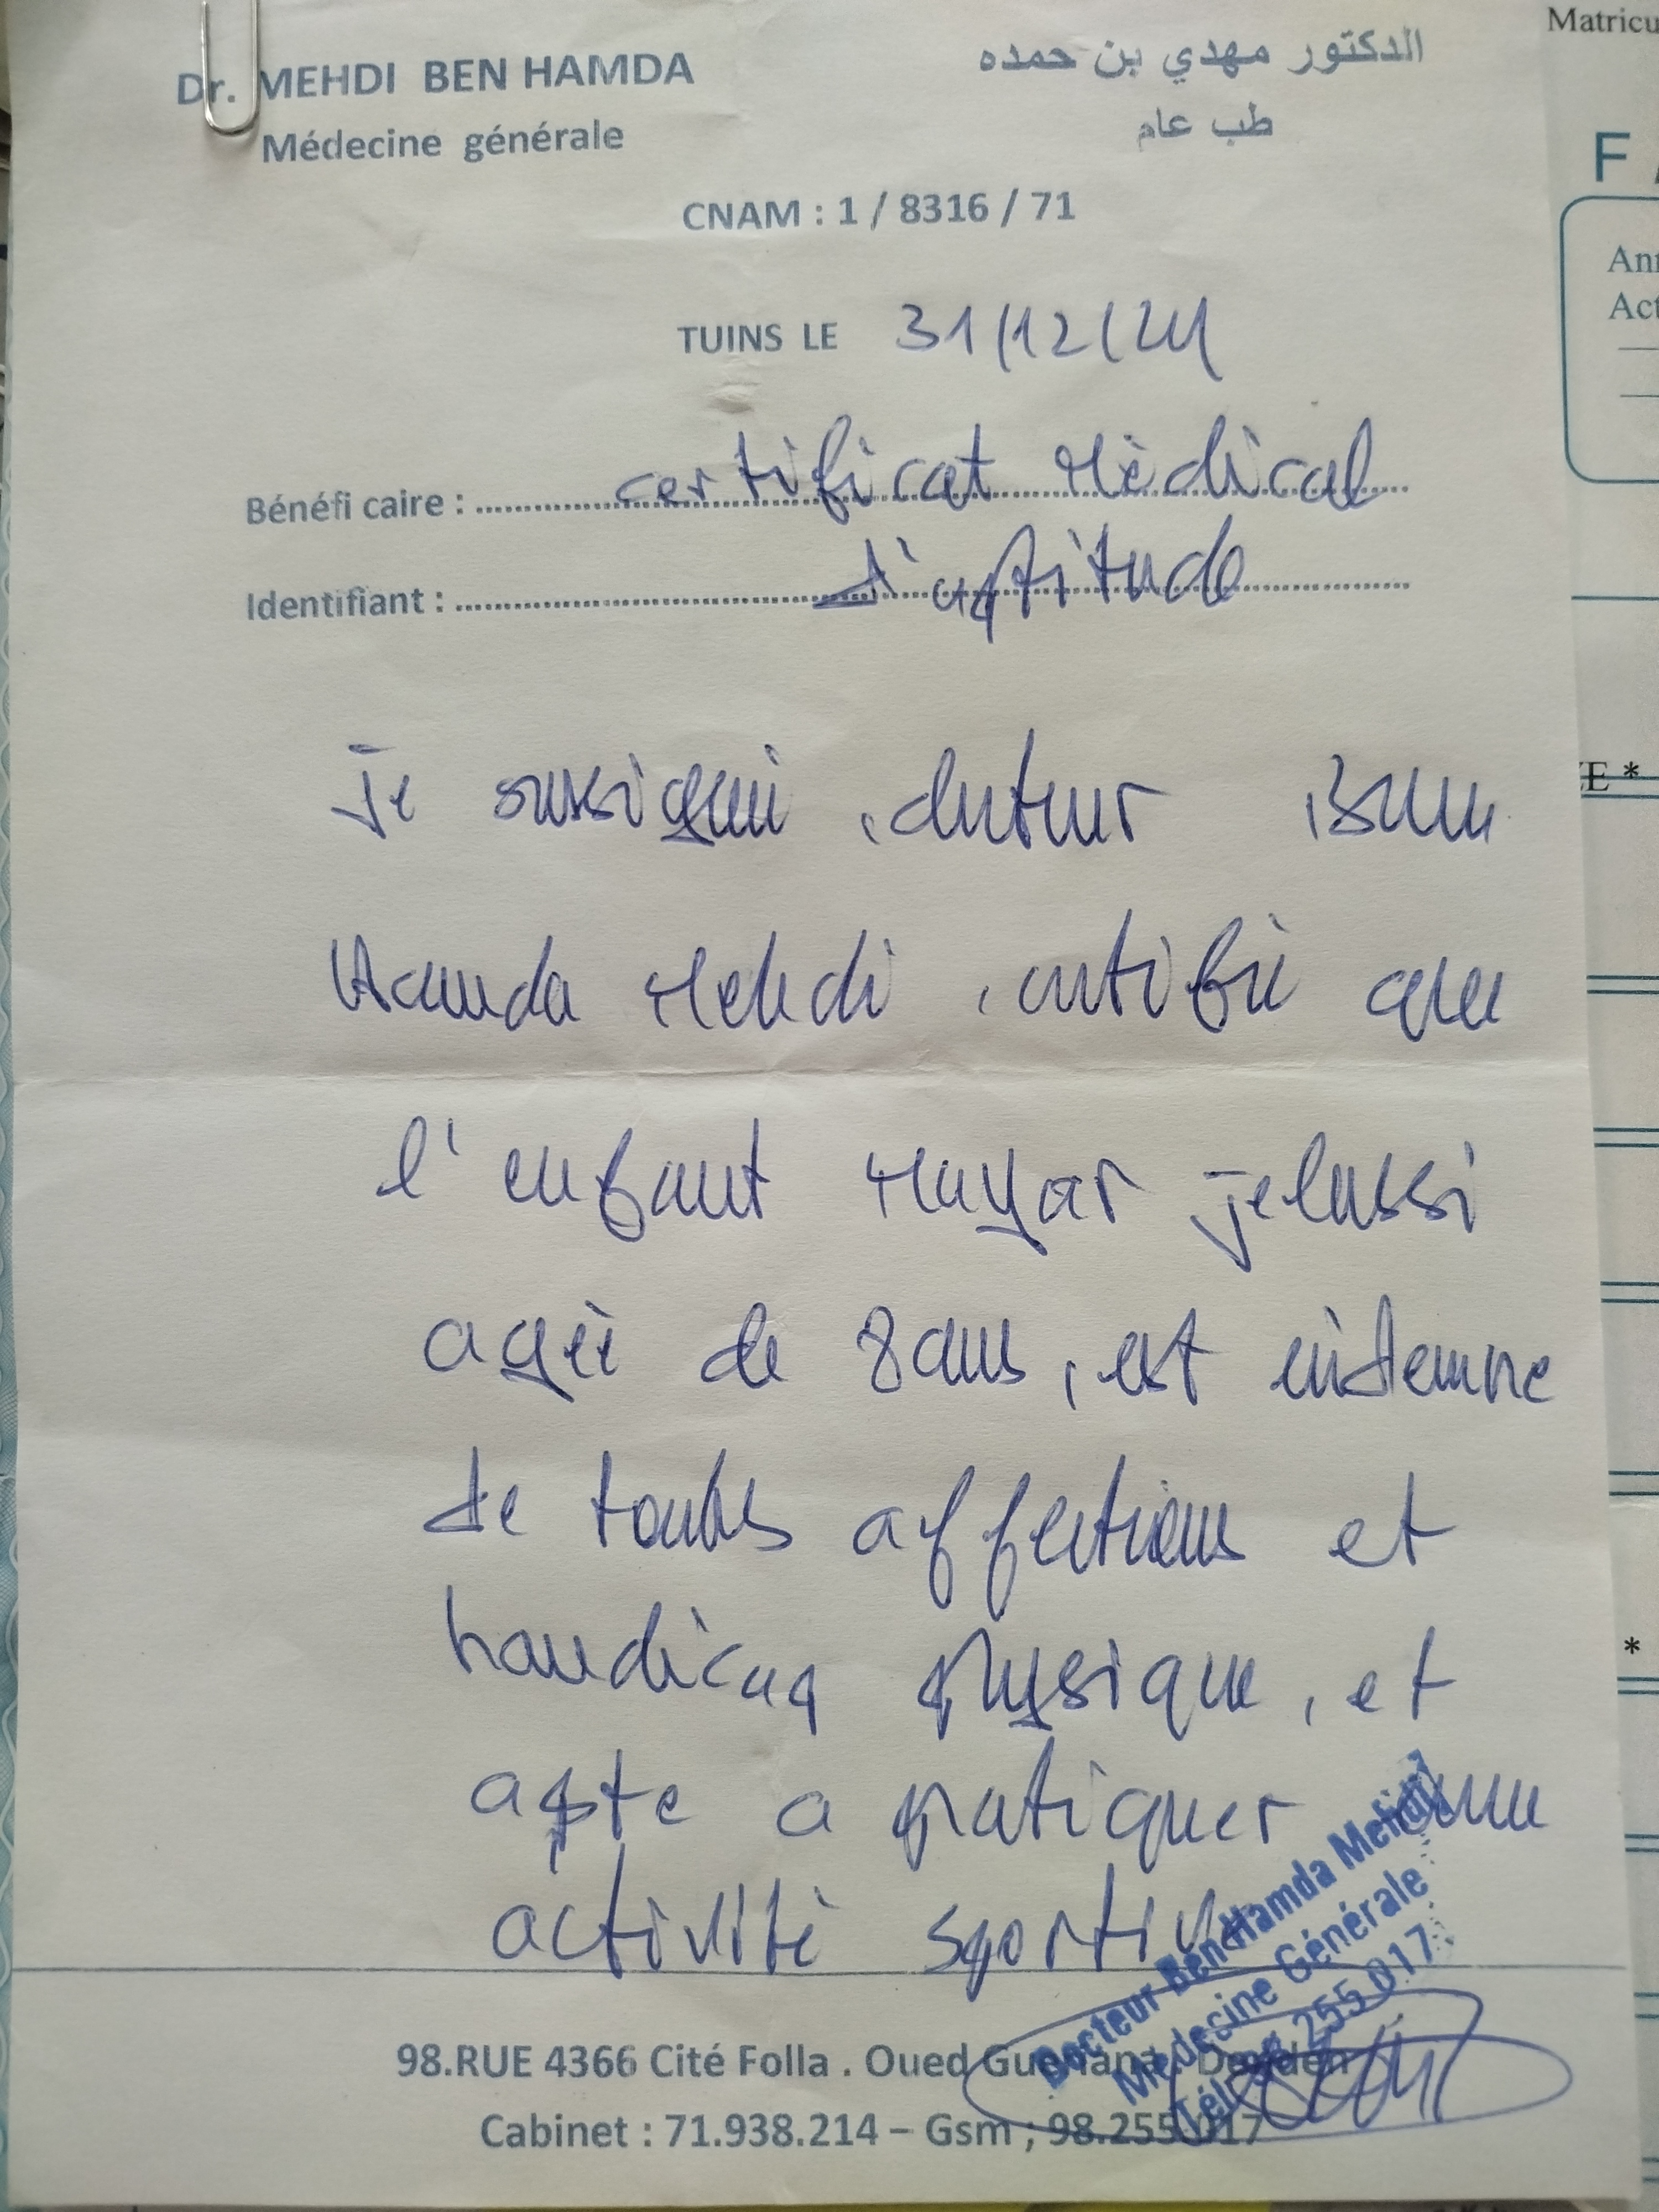 Dr. MEHDI BEN HAMDA
Médecine générale
الدكتور مهدي بن حمده
طب عام
CNAM : 1 / 8316 / 71
TUINS LE 31/12/24
Bénéfi caire : certificat Médical
Identifiant : d'aptitude
Je soussigné, docteur Ben
Hamda Mehdi, certifie que
l'enfant Mayar jelassi
agée de 8 ans, est indemne
de toutes affections et
handicap physique, et
apte a pratiquer une
activité sportive
Docteur Ben Hamda Mehdi
Médecine Générale
Tél: 98 255 017
98.RUE 4366 Cité Folla . Oued Denden
Cabinet : 71.938.214 – Gsm ; 98.255.017
Matricu
F
Ann
Act
E *
*